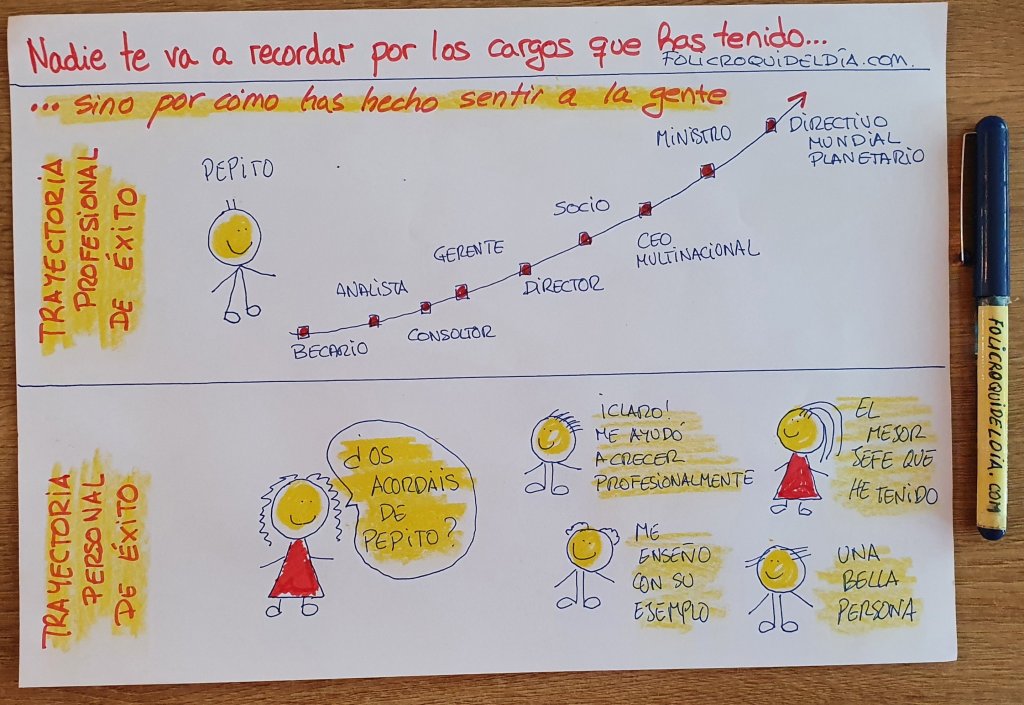 Nadie te va a recordar por los cargos que has tenido...
FOLICROQUIDELDÍA.COM.
... sino por cómo has hecho sentir a la gente
TRAYECTORIA
PROFESIONAL
DE ÉXITO
PEPITO
BECARIO
ANALISTA
CONSULTOR
GERENTE
DIRECTOR
SOCIO
CEO
MULTINACIONAL
MINISTRO
DIRECTIVO
MUNDIAL
PLANETARIO
TRAYECTORIA
PERSONAL
DE ÉXITO
¿OS
ACORDÁIS
DE
PEPITO?
¡CLARO!
ME AYUDÓ
A CRECER
PROFESIONALMENTE
EL
MEJOR
JEFE QUE
HE TENIDO
ME
ENSEÑO
CON SU
EJEMPLO
UNA
BELLA
PERSONA
FOLICROQUIDELDIA.COM